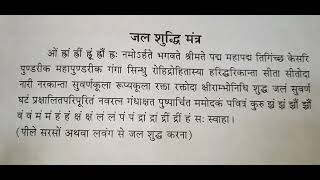 जल शुद्धि मंत्र
ओं ह्रां ह्रीं ह्रूं ह्रौं ह्रः नमोऽर्हते भगवते श्रीमते पद्म महापद्म तिगिंच्छ केसरि
पुण्डरीक महापुण्डरीक गंगा सिन्धु रोहिद्रोहितास्या हरिद्धरिकान्ता सीता सीतोदा
नारी नरकान्ता सुवर्णकूला रूप्यकूला रक्ता रक्तोदा क्षीराम्भोनिधि शुद्ध जलं सुवर्ण
घटं प्रक्षालितपरिपूरितं नवरत्न गंधाक्षत पुष्पार्चित ममोदकं पवित्रं कुरु झं झं झौं झौं
वं वं मं मं हं हं क्षं क्षं लं लं पं पं द्रां द्रां द्रीं द्रीं हं सः स्वाहा।
(पीले सरसों अथवा लवंग से जल शुद्ध करना)